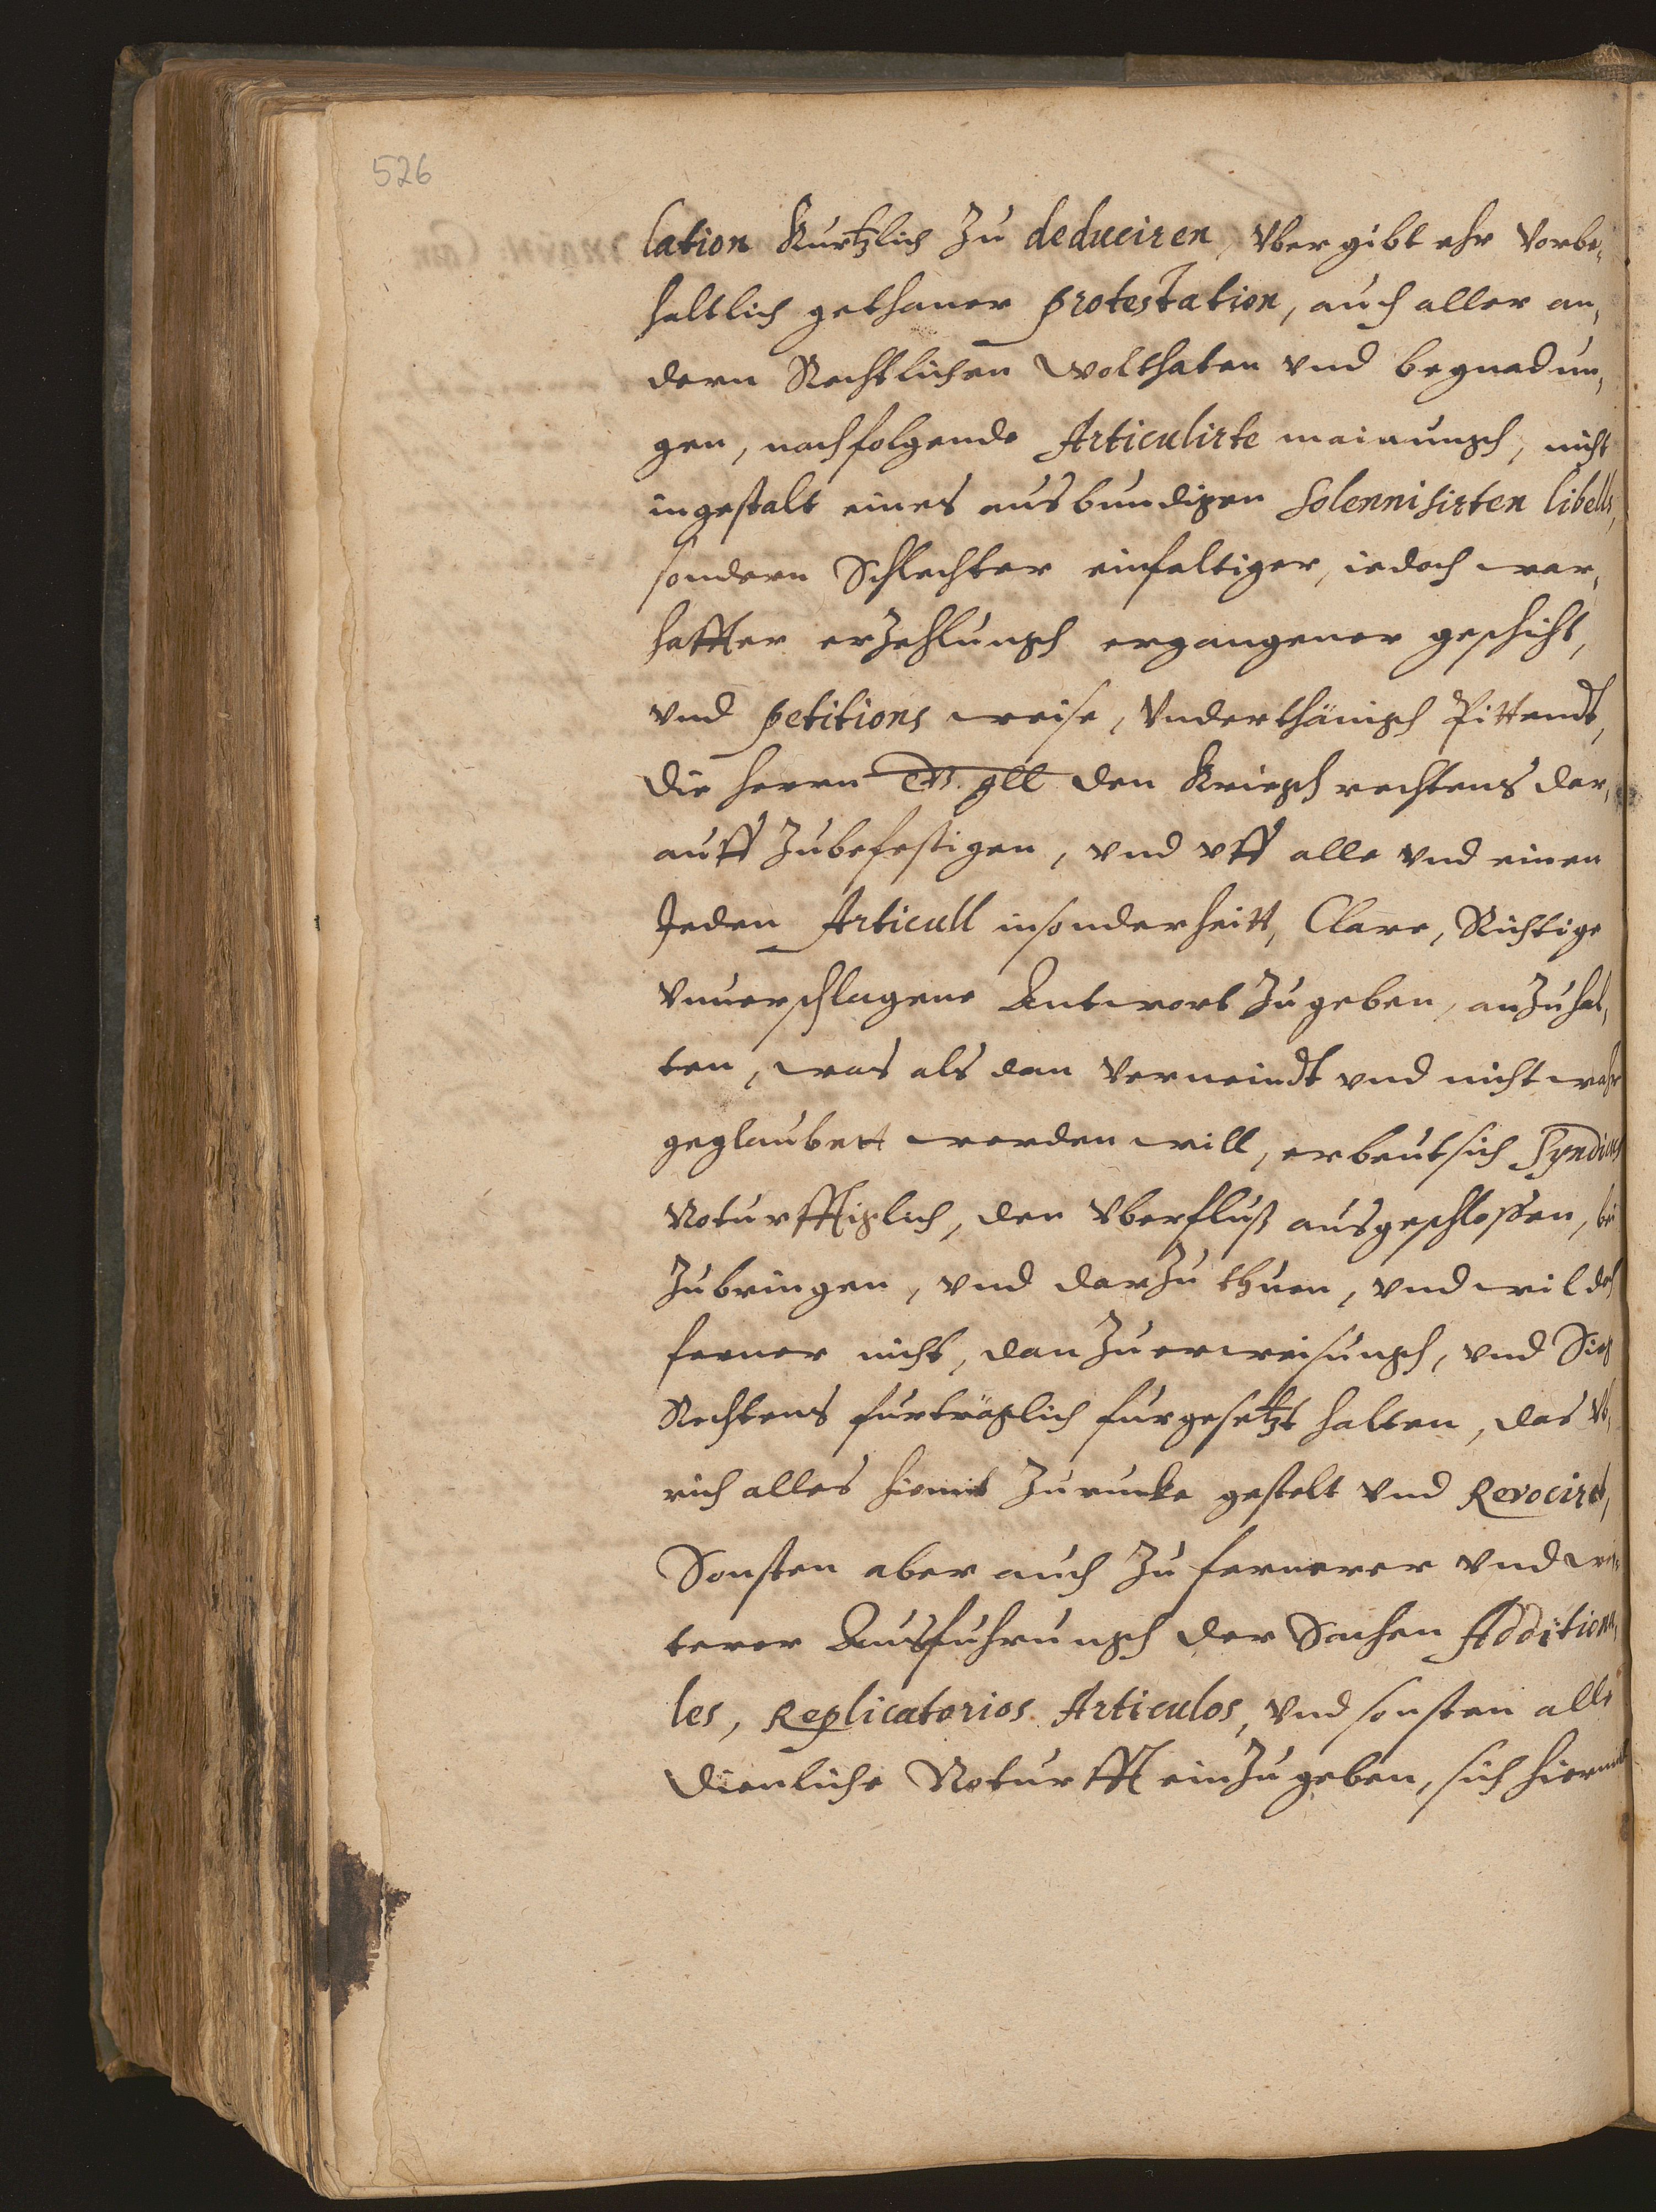 526
lation Kurtzlich Zu deduciren, Vber gibt ehr Vorbe,
haltlich gethaner protestation, auch aller an,
dern Rechtlichen wolthaten vnd begnadun,
gen, nachfolgende Articulirte mainungh, nicht
in gestalt eines ausbundigen Solennisirten libells,
sondern Schlechter einfaltiger, iedoch war,
haffter erzehlungh ergangener geschicht,
vnd petitions weise, Vnderthänigh Pittendt,
die herrn den Kriegh rechtens dar,
auff Zubefestigen, vnd vff alle vnd einen
Jeden Articull insonderheitt, Clare, Richtige
Vnuerschlagene Antwort Zu geben, anzuhal,
ten, was als dan Verneindt vnd nicht wahr
geglaubett werden will, erbeut sich Syndicus
Noturfftiglich, den Vberfluß ausgeschloßen, bei
Zubringen, vnd darzu thuen, vnd wil doch
ferner nicht, dan Zu erweisungh, vnd Sieg
Rechtens furträglich furgesetzt halten, das Vb,
rich alles hiemit Zurucke gestelt vnd Revocirt,
Sonsten aber auch Zu fernerer vnd wei,
terer Ausfuhrungh der Sachen Additiona,
les, Replicatorios Articulos, vnd sonsten alle
dienliche Noturfft einzugeben, sich hiermit